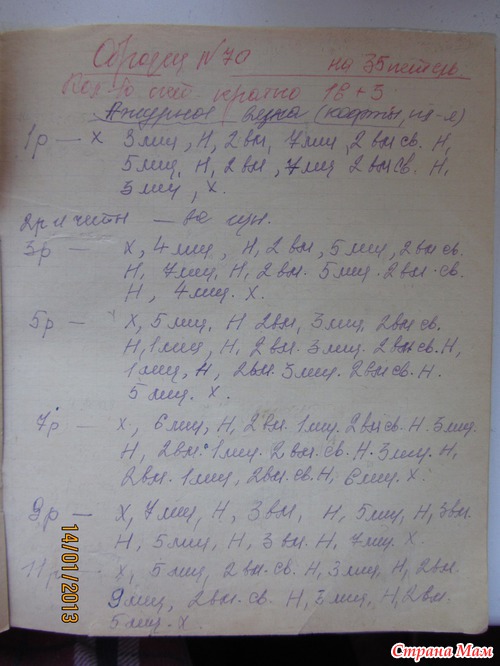 Образец N 70 на 35 петель
Кол-во пет кратно 16 + 3
Ажурное вязка (кофты, из-я)
1р — х 3 лиц, Н, 2вм, 7лиц, 2 вм св. Н,
5лиц, Н, 2 вм, 7лиц 2 вм св. Н,
3лиц, х.
2р и четн — все изн.
3р — х, 4 лиц, Н, 2 вм, 5 лиц, 2вм св.
Н, 7лиц, Н, 2 вм. 5 лиц. 2 вм. св.
Н, 4лиц. х.
5р — х, 5 лиц, Н 2вм, 3 лиц, 2вм св.
Н, 1 лиц, Н, 2 вм. 3 лиц. 2вм св. Н,
1 лиц, Н, 2вм. 3 лиц. 2вм св. Н.
5 лиц. х.
7р — х, 6 лиц, Н, 2 вм. 1 лиц. 2вм св. Н. 3лиц.
Н, 2вм. 1 лиц. 2вм. св. Н. 3 лиц. Н,
2вм. 1 лиц, 2вм. св. Н, 6лиц. х.
9р — х, 7 лиц, Н, 3 вм, Н, 5 лиц, Н, 3вм.
Н, 5 лиц, Н, 3 вм. Н, 7лиц. х.
11р — х, 5 лиц, 2 вм. св. Н, 3 лиц, Н, 2вм.
9 лиц, 2вм. св. Н, 3 лиц, Н, 2вм.
5 лиц. х.
14/01/2013
Страна Мам